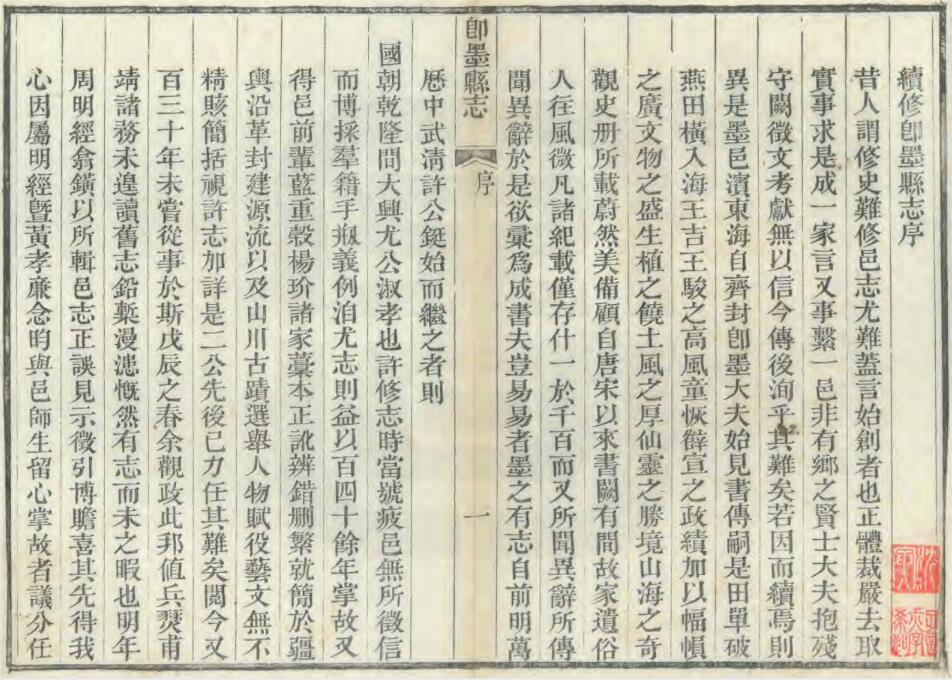 續修卽墨縣志序
昔人謂修史難修邑志尤難蓋言始創者也正體裁嚴去取
實事求是成一家言又事繫一邑非有鄉之賢士大夫抱殘
守闕徵文考獻無以信今傳後洵乎其難矣若因而續焉則
異是墨邑濱東海自齊封卽墨大夫始見書傳嗣是田單破
燕田橫入海王吉王駿之高風童恢薛宣之政績加以幅幀
之廣文物之盛生植之饒土風之厚仙靈之勝境山海之奇
觀史册所載蔚然美備顧自唐宋以來書闕有間故家遺俗
人往風微凡諸紀載僅存什一於千百而又所聞異辭所傳
聞異辭於是欲彙爲成書夫豈易易者墨之有志自前明萬
卽墨縣志
序
一
歷中武淸許公鋌始而繼之者則
國朝乾隆間大興尤公淑孝也許修志時當號疲邑無所徵信
而博採羣籍手剏義例洎尤志則益以百四十餘年掌故又
得邑前輩藍重穀楊玠諸家藁本正訛辨錯刪繁就簡於疆
輿沿革封建源流以及山川古蹟選舉人物賦役藝文無不
精賅簡括視許志加詳是二公先後已力任其難矣閱今又
百三十年未嘗從事於斯戊辰之春余觀政此邦値兵燹甫
靖諸務未遑讀舊志鉛槧漫漶慨然有志而未之暇也明年
周明經翕鐄以所輯邑志正誤見示徵引博贍喜其先得我
心因屬明經曁黃孝廉念昀與邑師生留心掌故者議分任